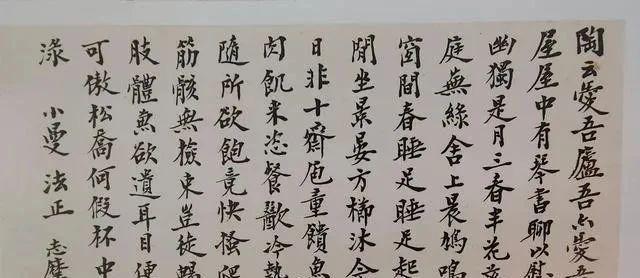 陶云愛吾廬吾亦愛吾
屋屋中有琴書聊以
幽獨是月三春半花
庭蕪綠舍上晨鳩鳴
窗間春睡足睡足起
閒坐景晏方櫛沐今
日非十齋庖重饋魚
肉飢來恣餐歠冷熱
隨所欲飽竟快搔爬
筋骸無檢束豈徒暢
肢體兼欲遺耳目便
可傲松喬何假杯中
淥 小曼 法正 志摩